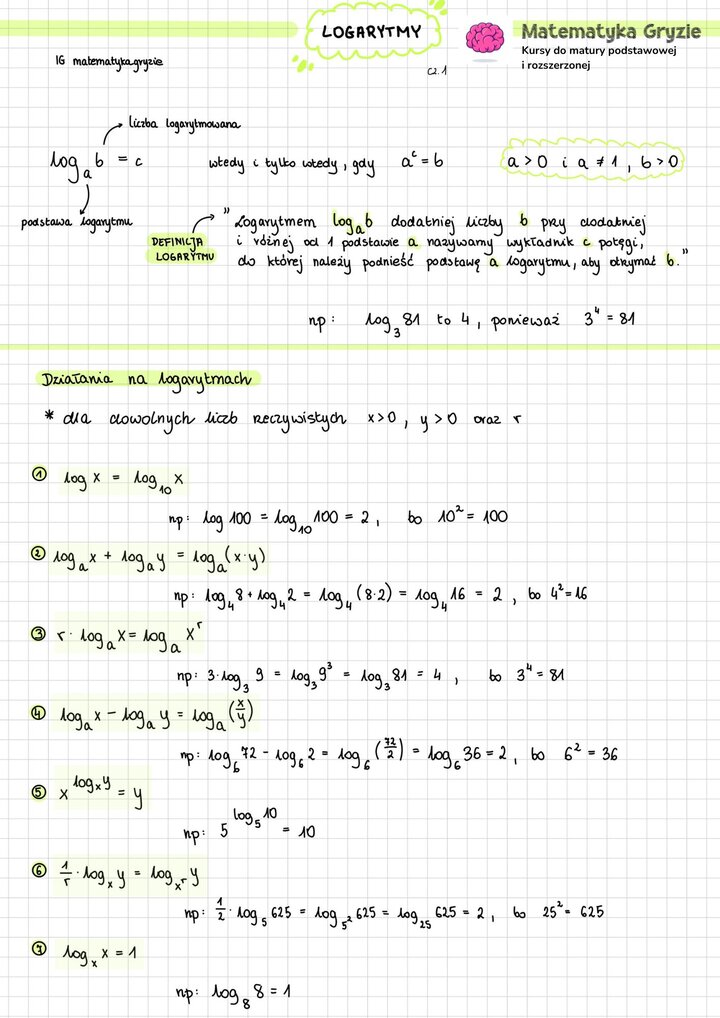 LOGARYTMY
Matematyka Gryzie
Kursy do matury podstawowej
i rozszerzonej
IG matematyka.gryzie
cz. 1
liczba logarytmowana
logₐ b = c wtedy i tylko wtedy, gdy aᶜ = b a > 0 i a ≠ 1, b > 0
podstawa logarytmu
DEFINICJA
LOGARYTMU
"Logarytmem logₐb dodatniej liczby b przy dodatniej
i różnej od 1 podstawie a nazywamy wykładnik c potęgi,
do której należy podnieść podstawę a logarytmu, aby otrzymać b."
np: log₃ 81 to 4, ponieważ 3⁴ = 81
Działania na logarytmach
* dla dowolnych liczb rzeczywistych x>0, y>0 oraz r
① log x = log₁₀ x
np: log 100 = log₁₀ 100 = 2, bo 10² = 100
② logₐ x + logₐ y = logₐ (x·y)
np: log₄ 8 + log₄ 2 = log₄ (8·2) = log₄ 16 = 2, bo 4² = 16
③ r · logₐ x = logₐ xʳ
np: 3·log₃ 9 = log₃ 9³ = log₃ 81 = 4, bo 3⁴ = 81
④ logₐ x − logₐ y = logₐ (x/y)
np: log₆ 72 − log₆ 2 = log₆ (72/2) = log₆ 36 = 2, bo 6² = 36
⑤ x^(logₓ y) = y
np: 5^(log₅ 10) = 10
⑥ 1/r · logₓ y = log_(xʳ) y
np: 1/2 · log₅ 625 = log_(5²) 625 = log₂₅ 625 = 2, bo 25² = 625
⑦ logₓ x = 1
np: log₈ 8 = 1